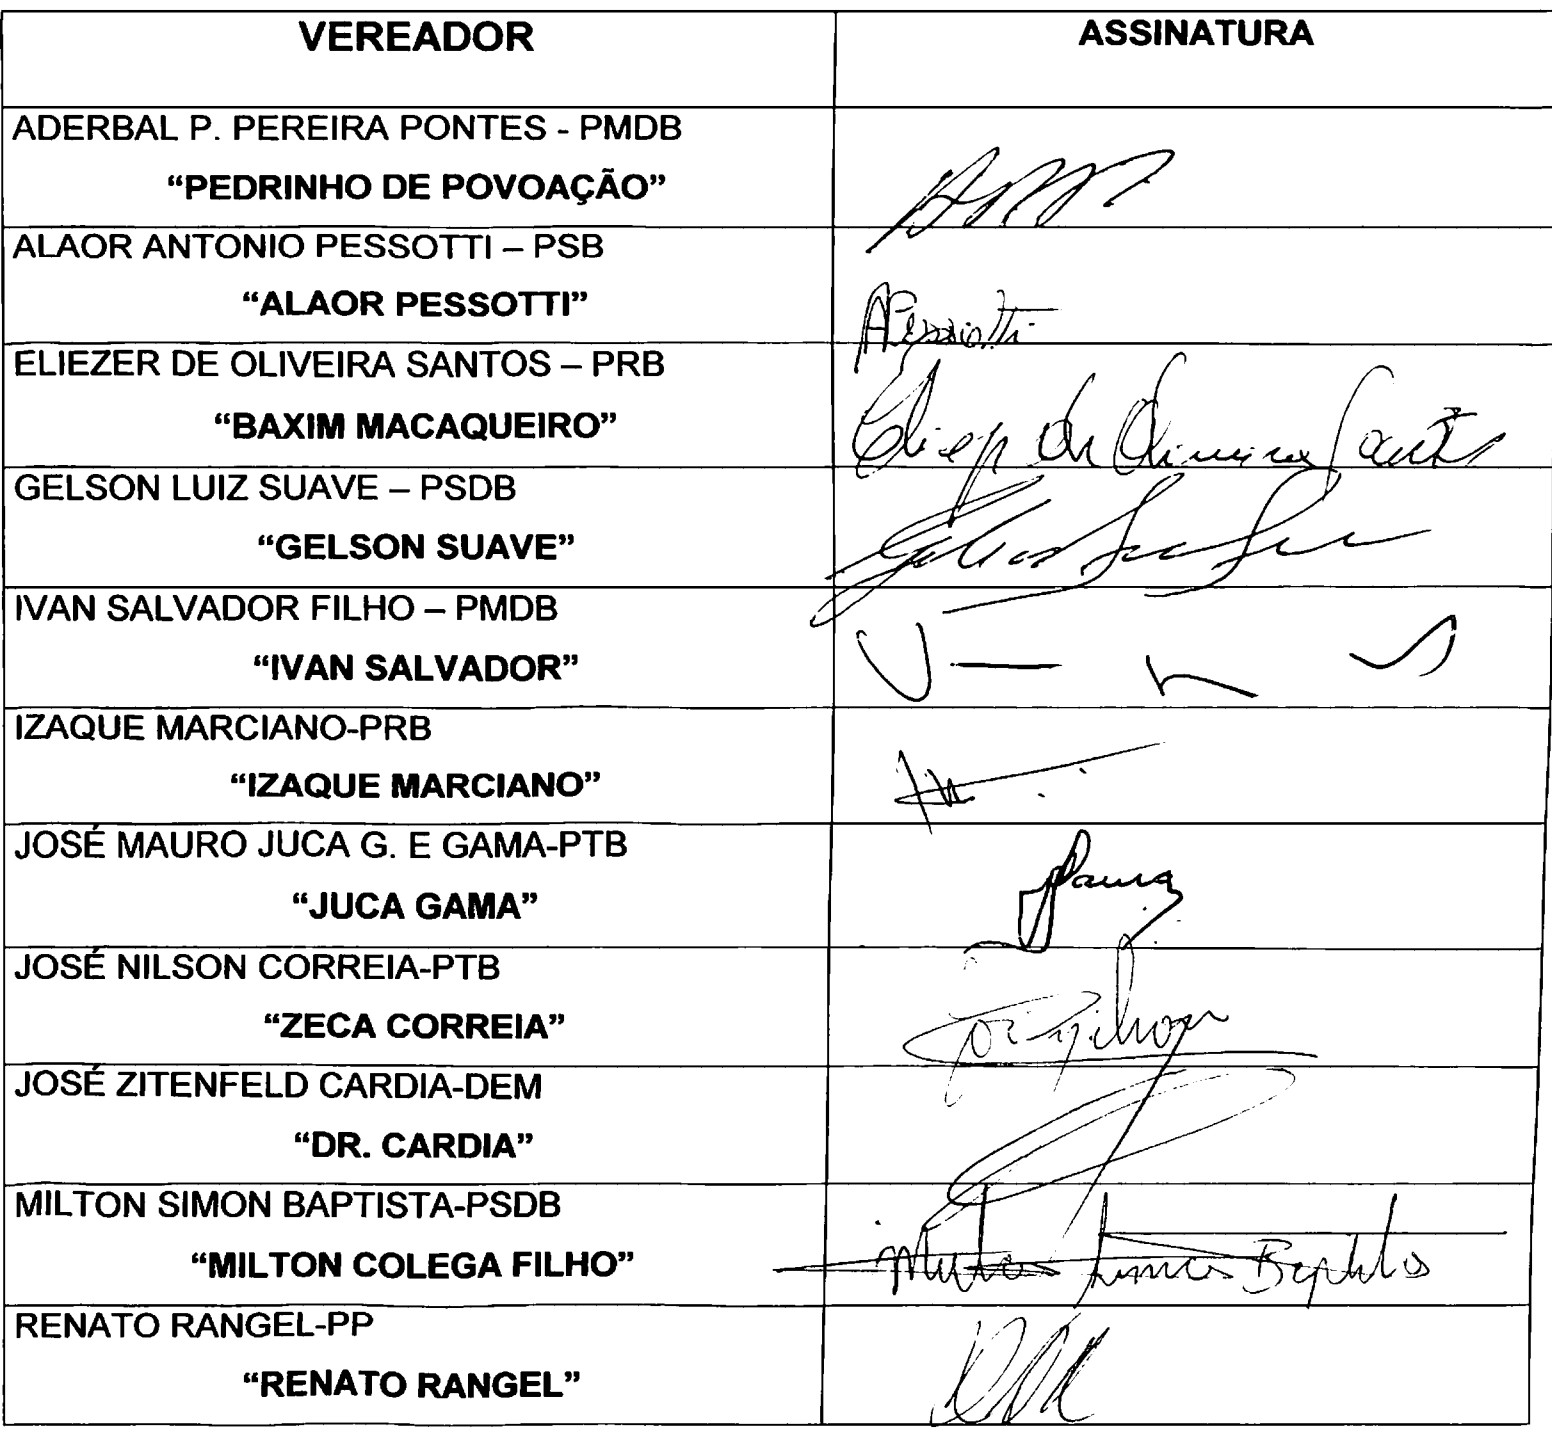 VEREADOR
ASSINATURA
ADERBAL P. PEREIRA PONTES - PMDB
“PEDRINHO DE POVOAÇÃO”
ALAOR ANTONIO PESSOTTI – PSB
“ALAOR PESSOTTI”
APessotti
ELIEZER DE OLIVEIRA SANTOS – PRB
“BAXIM MACAQUEIRO”
GELSON LUIZ SUAVE – PSDB
“GELSON SUAVE”
IVAN SALVADOR FILHO – PMDB
“IVAN SALVADOR”
IZAQUE MARCIANO-PRB
“IZAQUE MARCIANO”
JOSÉ MAURO JUCA G. E GAMA-PTB
“JUCA GAMA”
JOSÉ NILSON CORREIA-PTB
“ZECA CORREIA”
JOSÉ ZITENFELD CARDIA-DEM
“DR. CARDIA”
MILTON SIMON BAPTISTA-PSDB
“MILTON COLEGA FILHO”
RENATO RANGEL-PP
“RENATO RANGEL”